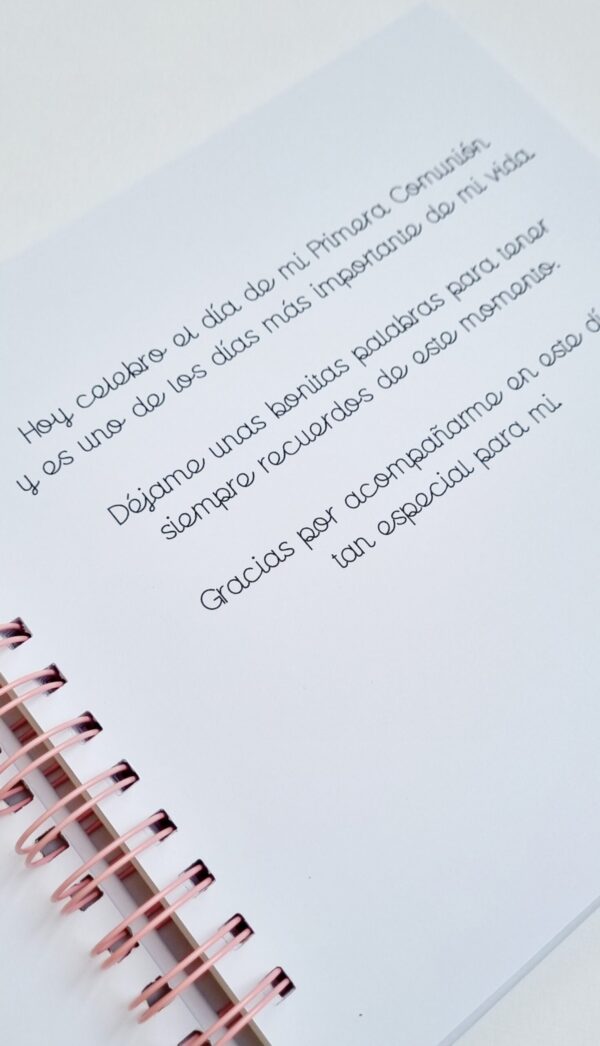 Hoy celebro el día de mi Primera Comunión
y es uno de los días más importante de mi vida
Déjame unas bonitas palabras para tener
siempre recuerdos de este momento.
Gracias por acompañarme en este dí
tan especial para mi.